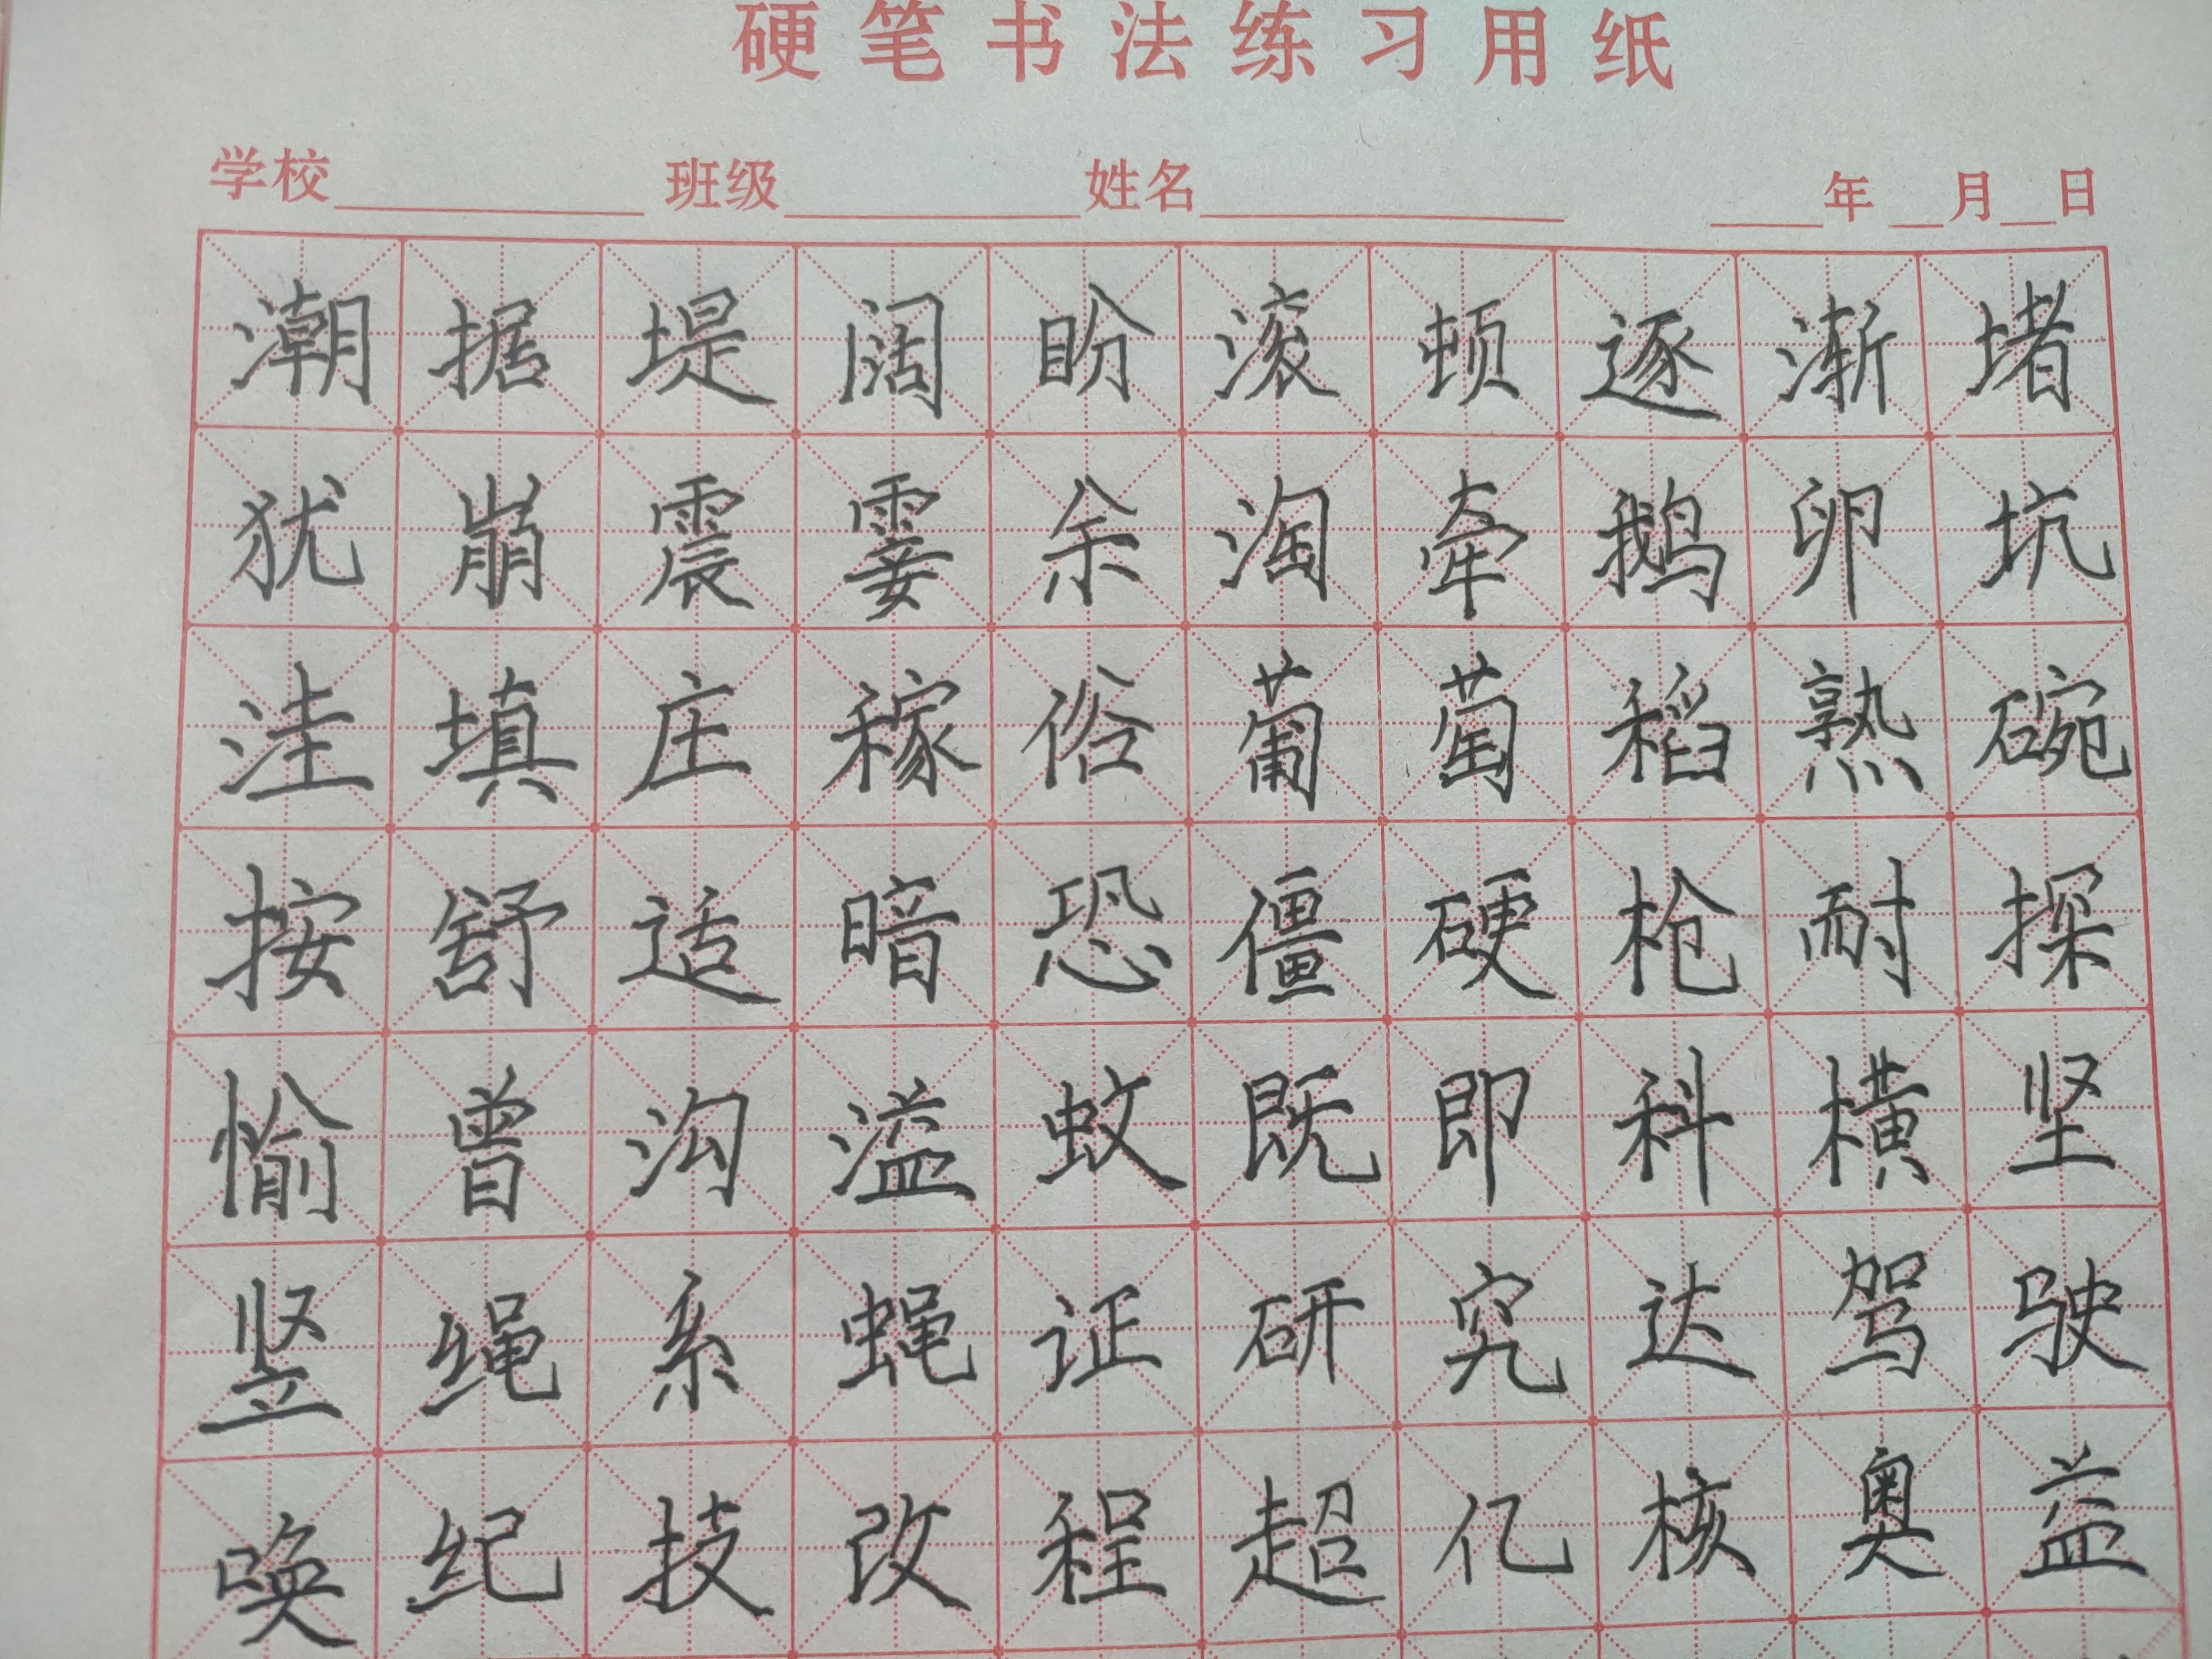 硬笔书法练习用纸
学校 班级 姓名 年 月 日
潮据堤阔盼滚顿逐渐堵
犹崩震霎余淘牵鹅卵坑
洼填庄稼俗葡萄稻熟豌
按舒适暗恐僵硬枪耐探
愉曾沟溢蚊既即科横坚
竖绳系蝇证研究达驾驶
唤纪技改程超亿核奥益